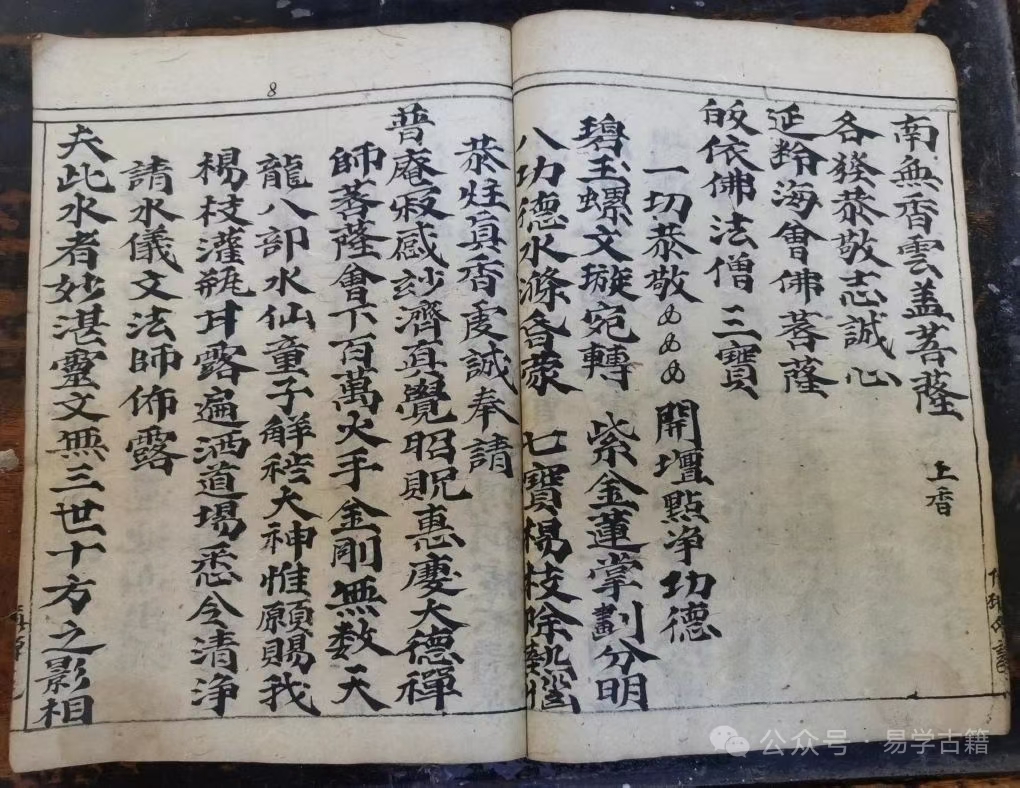 南無香雲盖菩薩 上香
各發恭敬志誠心
延齡海會佛菩薩
皈依佛法僧三寶
一切恭敬 開壇點净功德
碧玉螺文璇宛轉 紫金蓮掌劃分明
八功德水滌昏蒙 七寶楊枝除熱惱
恭炷真香虔誠奉請
普庵寂感玅濟真覺昭貺惠慶大德禪
師菩薩會下百萬火手金剛無数天
龍八部水仙童子解穢大神惟願賜我
楊枝灌瓶甘露遍洒道場悉令清浄
請水儀文法師佈露
夫此水者妙湛靈文無三世十方之影相
8
公众号·易学古籍